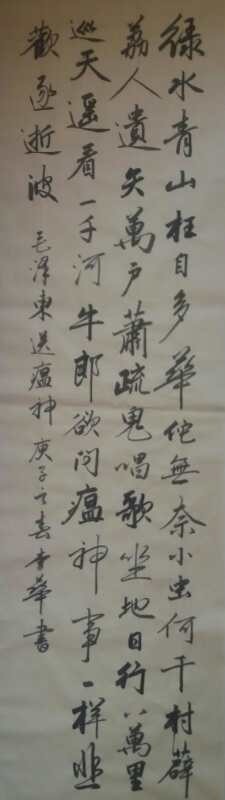 綠水青山枉自多華佗無奈小虫何千村薜
荔人遺矢萬戶蕭疏鬼唱歌坐地日行八萬里
巡天遥看一千河牛郎欲问瘟神事一样悲
歡逐逝波 毛澤東送瘟神 庚子之春李華書